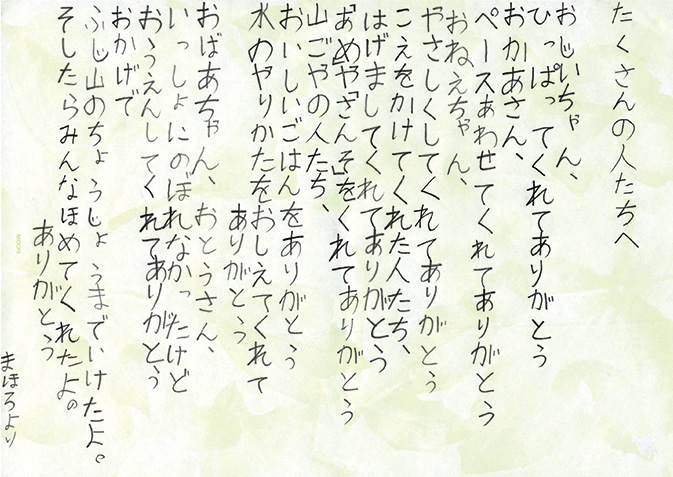 たくさんの人たちへ
おじいちゃん、
ひっぱってくれてありがとう
おかあさん、
ペースあわせてくれてありがとう
おねえちゃん、
やさしくしてくれてありがとう
こえをかけてくれた人たち、
はげましてくれてありがとう
「あめ」や「さんそ」をくれてありがとう
山ごやの人たち、
おいしいごはんをありがとう
水のやりかたをおしえてくれて
ありがとう
おばあちゃん、おとうさん、
いっしょにのぼれなかったけど
おうえんしてくれてありがとう
おかげで
ふじ山のちょうじょうまでいけたよ。
そしたらみんなほめてくれたよ。
ありがとう
まほろより